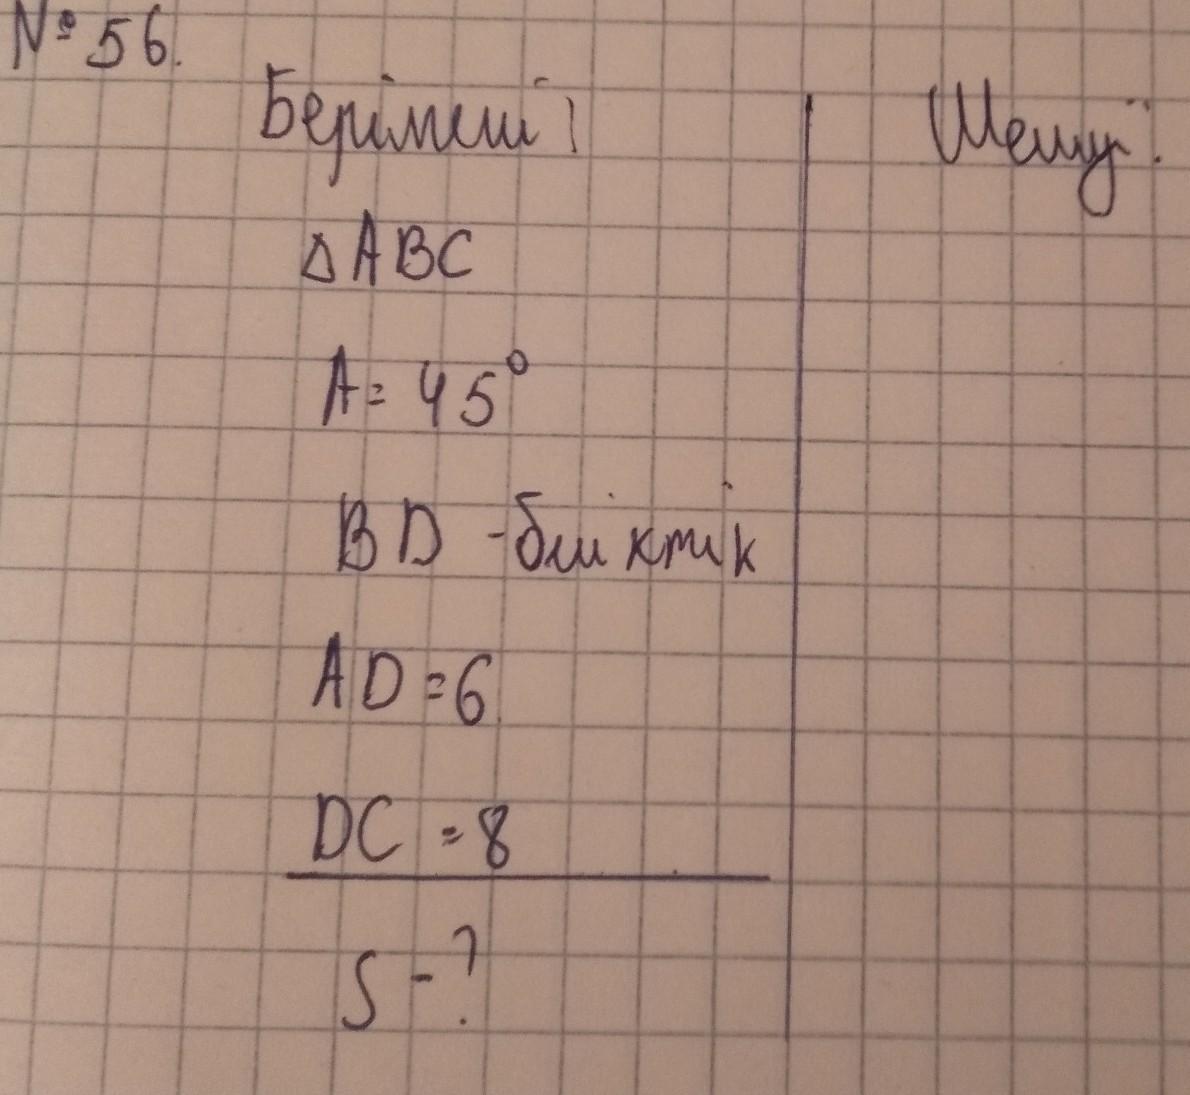 № 56.
Берілгені:
Шешуі:
△ABC
A = 45°
BD - биіктік
AD = 6
DC = 8
S - ?